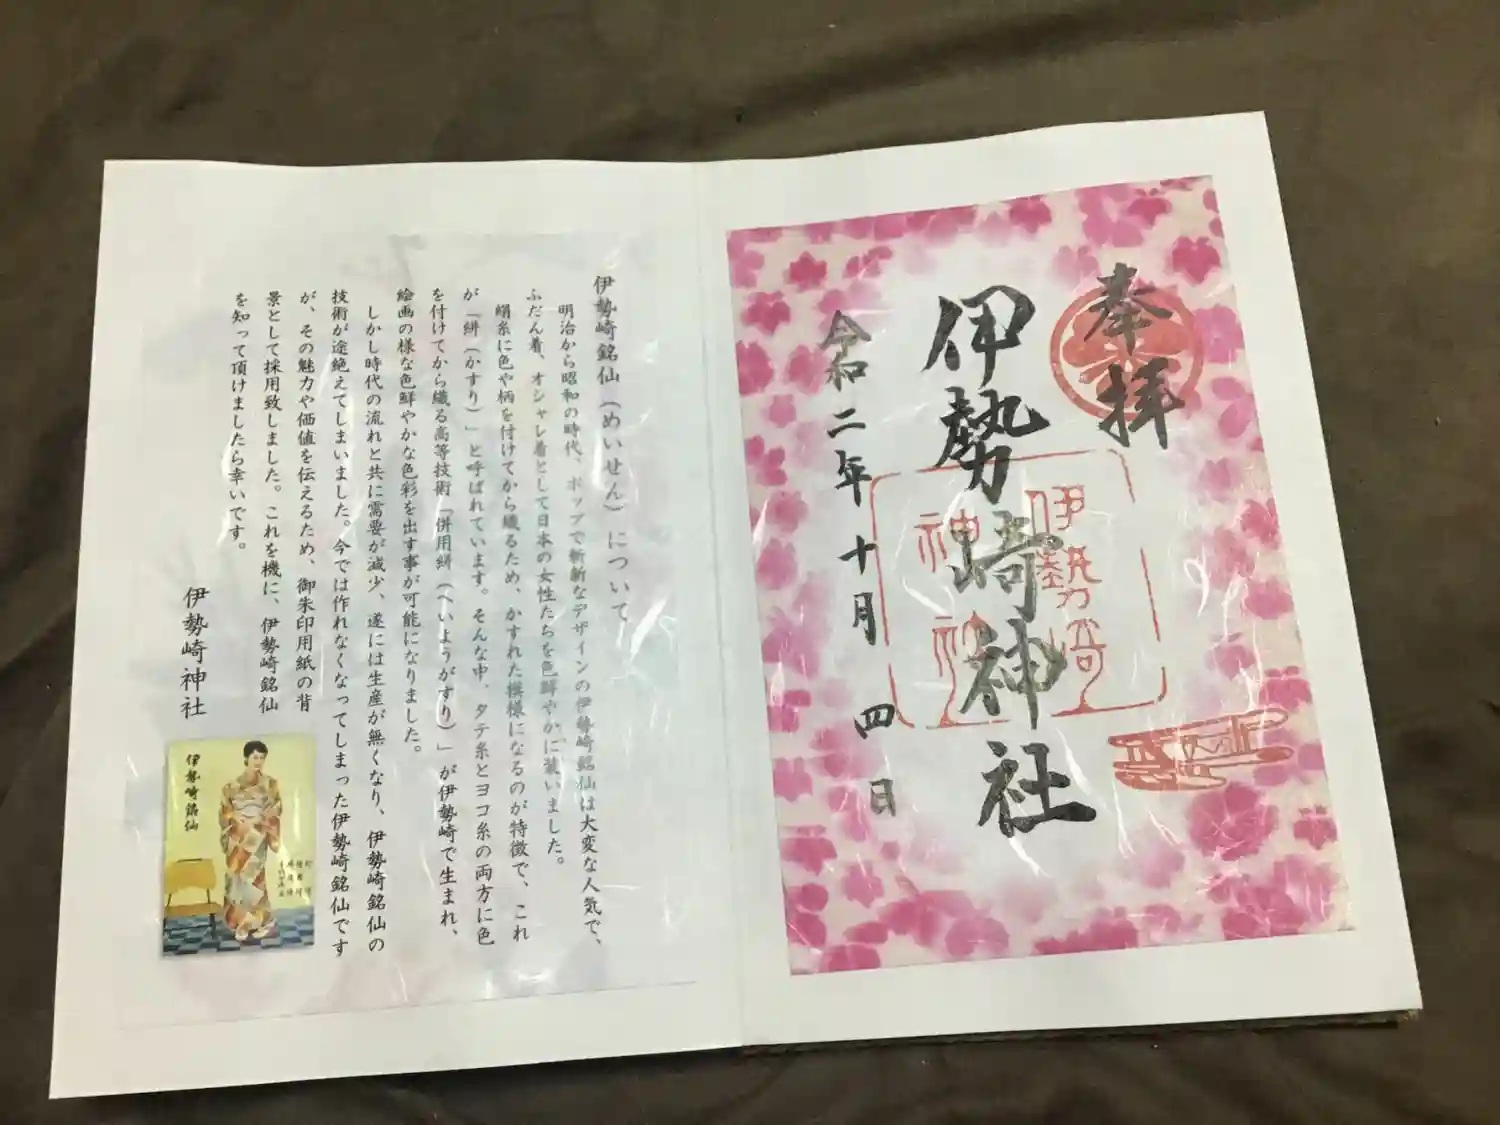 奉拝
伊勢崎神社
伊勢崎
神社
令和二年十月四日
伊勢崎銘仙(めいせん)について
明治から昭和の時代、ポップで斬新なデザインの伊勢崎銘仙は大変な人気で、
ふだん着、オシャレ着として日本の女性たちを色鮮やかに装いました。
絹糸に色や柄を付けてから織るため、かすれた模様になるのが特徴で、これ
が「絣(かすり)」と呼ばれています。そんな中、タテ糸とヨコ糸の両方に色
を付けてから織る高等技術「併用絣(へいようがすり)」が伊勢崎で生まれ、
絵画の様な色鮮やかな色彩を出す事が可能になりました。
しかし時代の流れと共に需要が減少、遂には生産が無くなり、伊勢崎銘仙の
技術が途絶えてしまいました。今では作れなくなってしまった伊勢崎銘仙です
が、その魅力や価値を伝えるため、御朱印用紙の背
景として採用致しました。これを機に、伊勢崎銘仙
を知って頂けましたら幸いです。
伊勢崎神社
伊勢崎銘仙